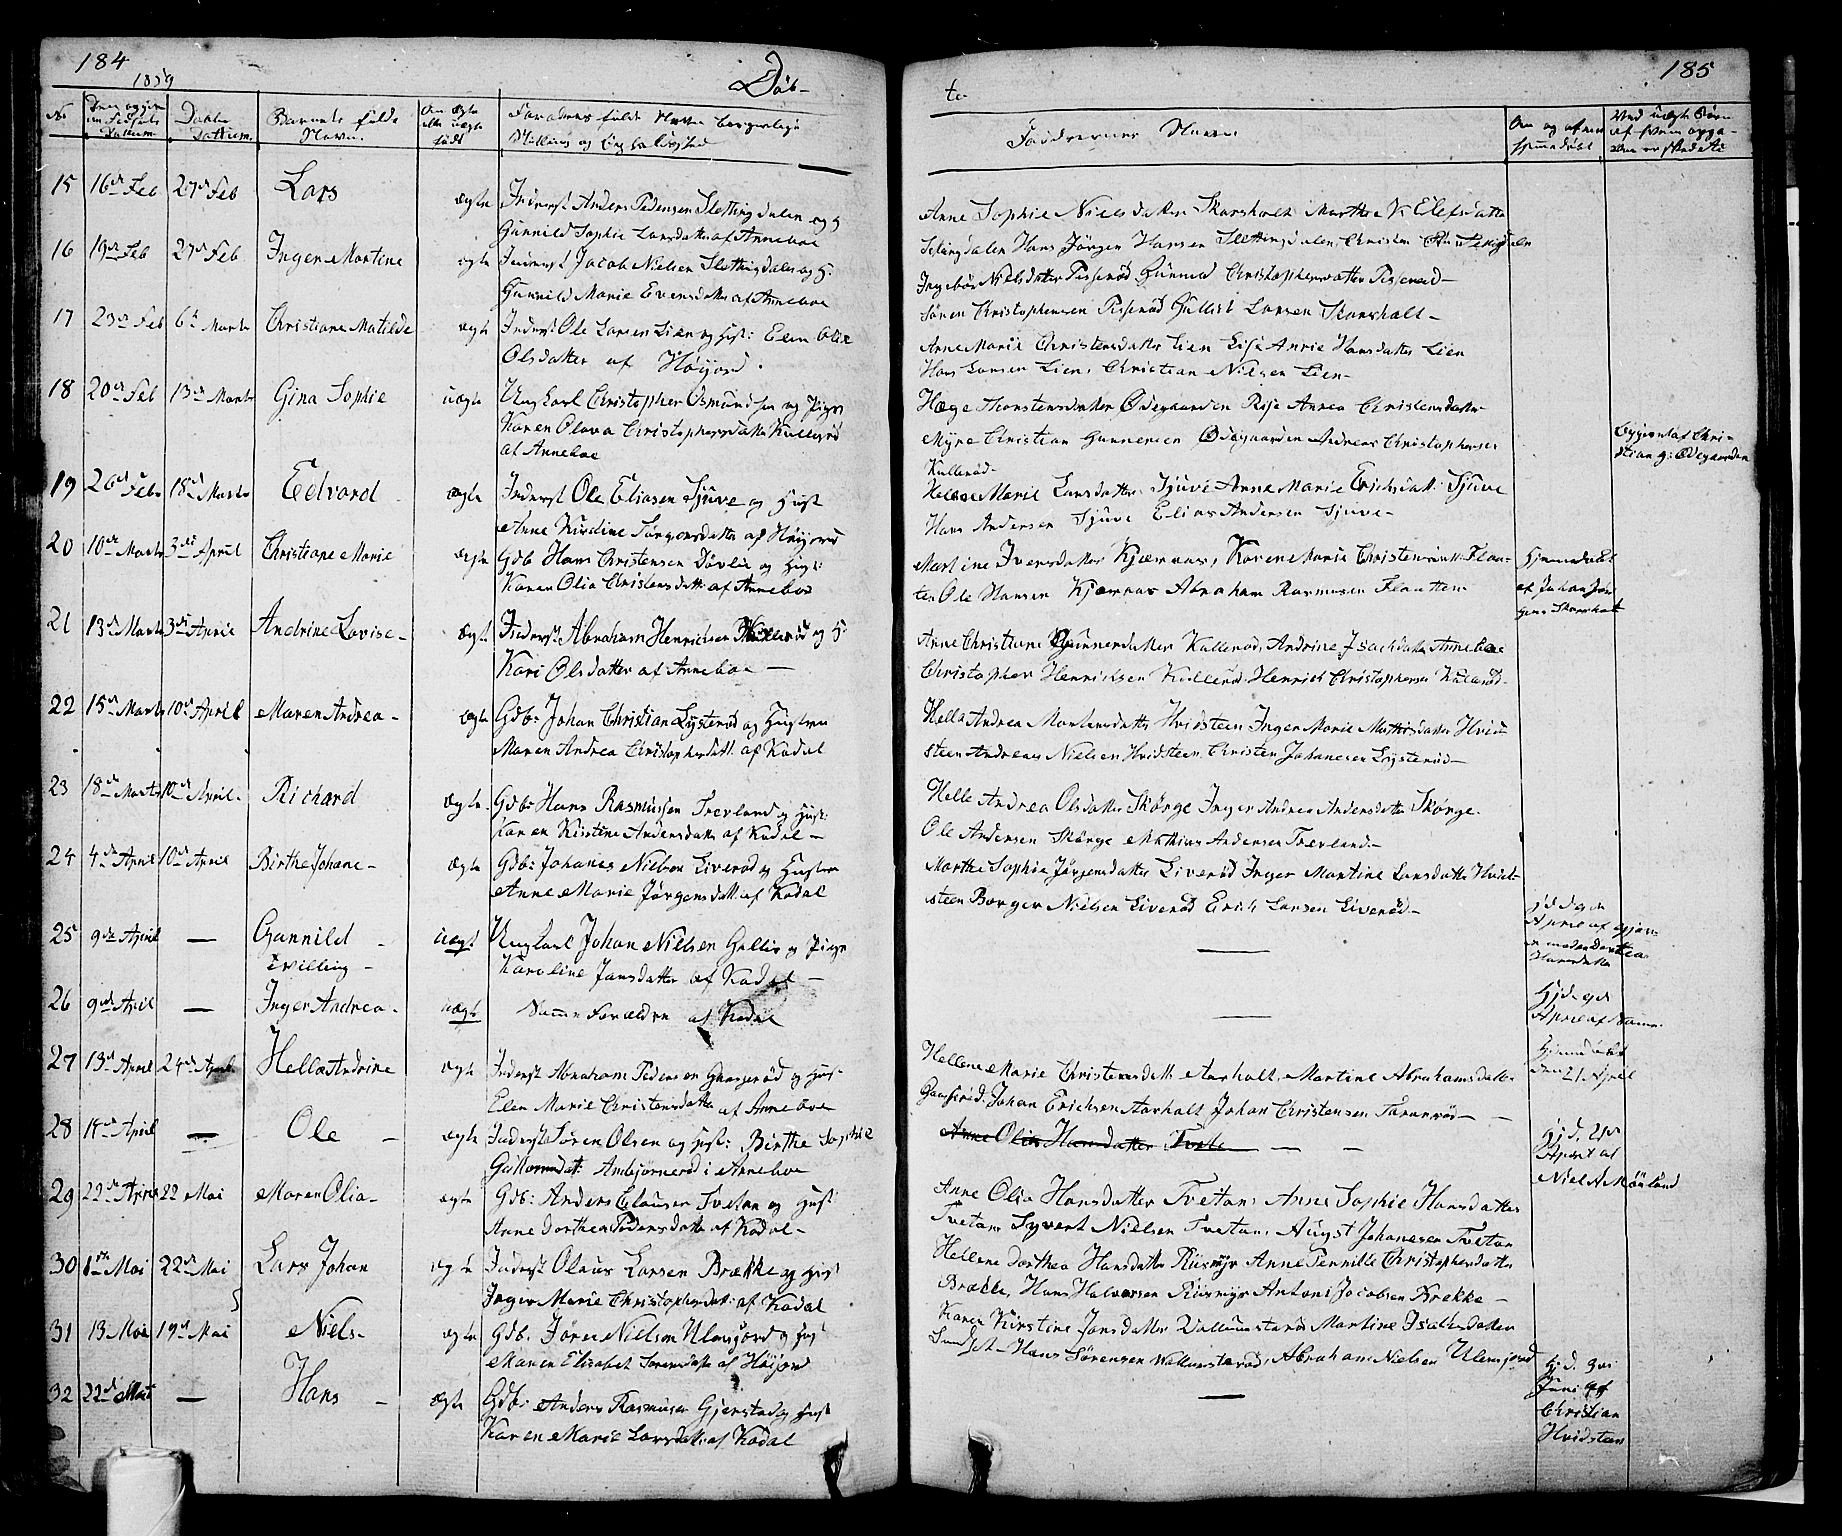 184
1859
Døb-
No
Barnets fulde
Navn.
15 16de Feb 27de Feb Lars ægte Inderst Anders Pedersen Slettingdalen og H
Gunnild Sophie Larsdatter af Anneboe
16 19de Feb 27de Feb Inger Martine ægte Inderst Jacob Nielsen Slettingdalen og H:
Gunnild Marie Evensdatter af Anneboe
17 23de Feb 6te Marts Christiane Matilde ægte Inderst Ole Larsen Lien og Hust: Elen Olie
Olsdatter af Høijord.
18 20de Feb 13de Marts Gina Sophie uægte Ungkarl Christopher Osmundsen og Pige
Karen Olava Christophersdatter Kullerød
af Anneboe
19 26de Feb 18de Marts Edvard ægte Inderst Ole Eliasen Sjuve og Hust
Anne Kirstine Jørgensdatter af Høijord
20 10de Marts 3die April Christiane Marie ægte Gdb: Hans Christensen Døvle og Hust:
Karen Olia Christensdatt: af Anneboe
21 13de Marts 3die April Andrine Lovise- ægte Inderst Abraham Henrichsen Kullerød og H:
Kari Olsdatter af Anneboe —
22 15de Marts 10de April Maren Andrea- ægte Gdb: Johan Christian Lysterød og Hustru
Maren Andrea Christophersdatt. af Kodal
23 18de Marts 10de April. Richard ægte. Gdb: Hans Rasmussen Trevland og Hust:
Karen Kirstine Andersdatter af Kodal —
24 4de April 10de April Birthe Johane- ægte Gdb: Johanes Nielsen Liverød og Hustru
Anne Marie Jørgensdatt. af Kodal
25 9de April — Gunnild - uægt Ungkarl Johan Nielsen Gallis og Pige
Tvilling - Karoline Jansdatter af Kodal —
26 9de April — Inger Andrea- uægte Samme Forældre af Kodal
27 13de April 24de April Helle Andrine ægte Inderst Abraham Pedersen Gaaserød og Hust
Elen Marie Christensdatter af Anneboe
28 14de April — Ole - ægte Inderst Søren Olsen og Hust: Birthe Sophie
Gulbransdat: Ambjørnerød i Anneboe
29 22de April 22 Mai Maren Olia- ægte Gdb: Anders Clausen Tvetan og Hust:
Anne Dorthea Pedersdatter af Kodal-
30 1ste Mai 22de Mai Lars Johan ægte Inderst Olaus Larsen Brække og Hust
Inger Marie Christophersdatt: af Kodal
31 13 Mai 19de Mai Niels- ægte Gdb. Jøren Nielsen Ulensjord og Hust
Maren Elisabet Sørensdatter af Høijord
32 22de Mai — Hans - ægte Gdb: Anders Rasmussen Gjerstad og Hust
Karen Marie Larsdatt: af Kodal
185
te
Faddrernes Navne
Anne Sophie Nielsdatter Skarsholt Marthe K Elefsdatter
Hans Jørgen Hansen Slettingdalen, Christen
Ingebør Nielsdatter Gunnild Christophersdatter
Søren Christophersen Gullist Larsen Skarsholt-
Anne Marie Christensdatter Lien Lise Anne Hansdatter Lien
Hans Larsen Lien, Christian Nielsen Lien-
Hæge Thorstensdatter Ødegaarden Rise Anrea Christensdatter
Myre Christian Gunnersen Ødegaarden Andreas Christophersen
Kullerød-
af Chri-
stian g: Ødegaarden
Marie Larsdatter Sjuve Anne Marie Erichsdatt: Sjuve
Hans Andersen Sjuve Elias Andersen Sjuve-
Martine Iversdatter Kjærnaas, Karen Marie Christensdatt: Flaa-
ten Ole Hansen Kjærnaas Abraham Rasmusen Flaatten
Hjemmedøbt
af Johan Jør
gens Skarsholt
Anne Christiane Gunnersdatter Kullerød, Andrine Isachdatter Anneboe
Christopher Henrichsen Kullerød Henrich Christophersen Kullerød-
Helle Andrea Mortensdatter Hvidsteen Inger Marie Mathisdatter Hvid
steen Andreas Nielsen Hvidsteen Christen Johanesen Lysterød-
Helle Andrea Olsdatter Skørge Inger Andrea Andersdatter Skørge
Ole Andersen Skørge Mathias Andersen Trevland-
Marthe Sophie Jørgensdatter Liverød Inger Martine Larsdatter Hvid-
steen Borger Nielsen Liverød Erich Larsen Liverød-
—
April af
Hansdatter
—
Hjd. 9de
April af Samme
Hellene Marie Christensdatt. Aarholt, Martine Abrahamsdatter
Gaaserød. Johan Erichsen Aarholt Johan Christensen —
Hjemmedøbt
den 21 April
Anne Olia Hansdatter Tvete — —
Hjd. 21de
April af
Niels A Mørland
Anne Olia Hansdatter Tvetan, Anne Sophie Hansdatter
Tvetan, Syvert Nielsen Tvetan, August Johanesen Tvetan
Hellene Dorthea Hansdatter Riismyr Anne Pernille Christophersdatter
Brække, Hans Halvorsen Riismyr Antoni Jacobsen Brekke-
Karen Kirstine Jansdatter Martine Isaksdatter
Hans Sørensen Abraham Nielsen Ulensjord
—
Hjd. 3die
Juni af
Christian
Hvidsteen